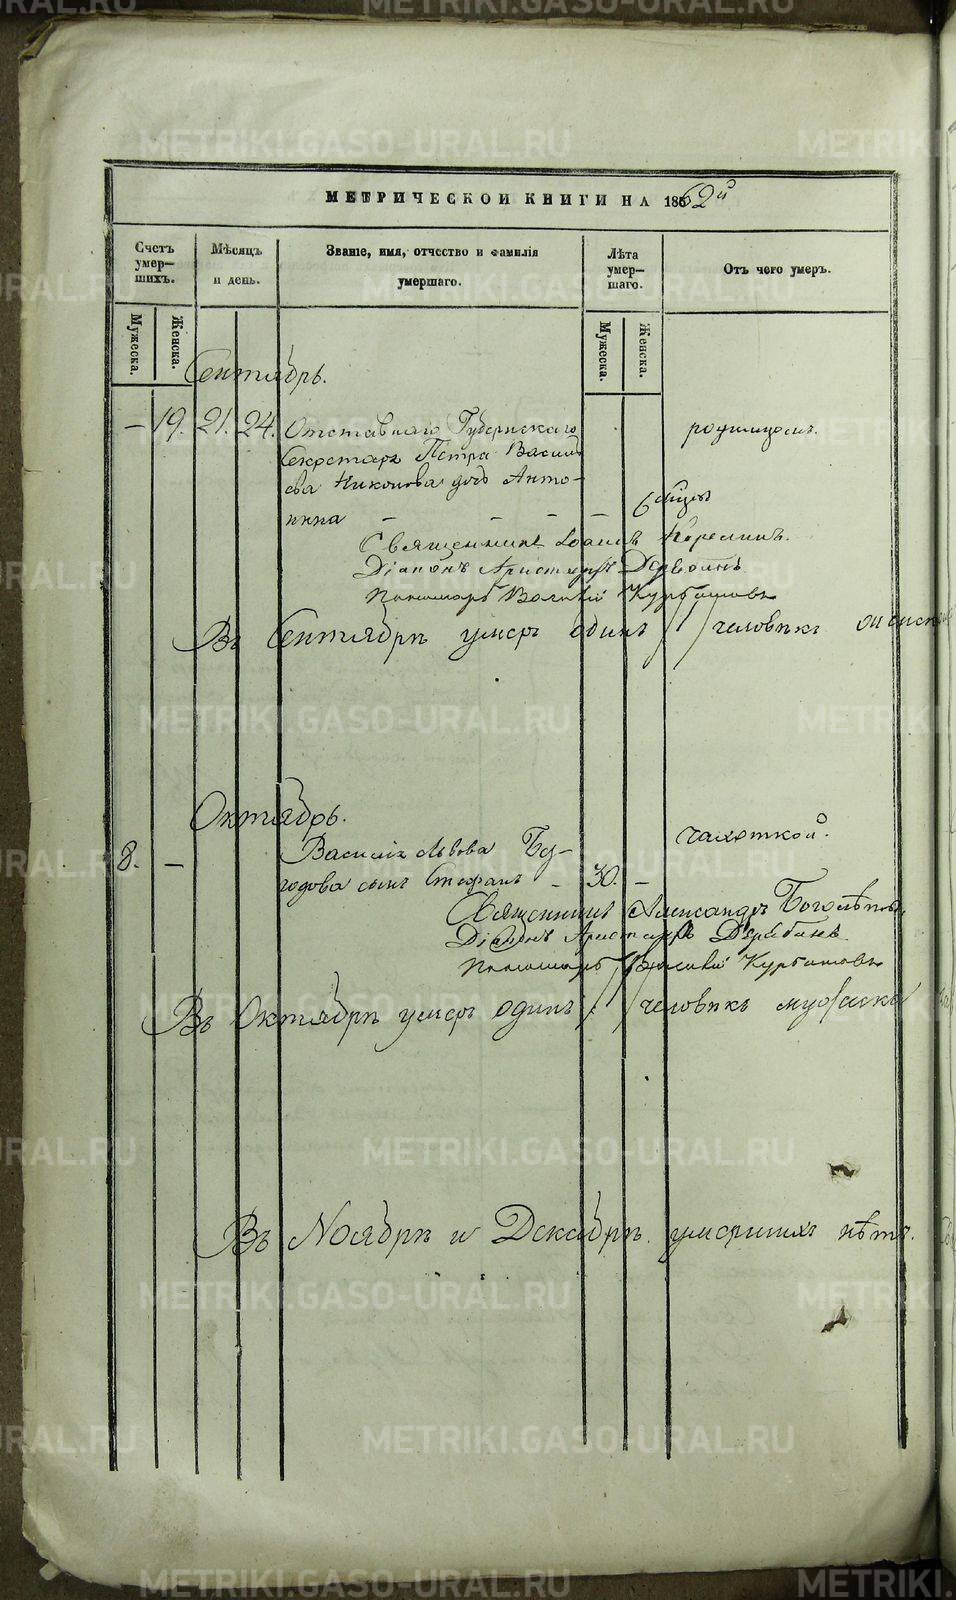 МЕТРИЧЕСКОЙ КНИГИ НА 1862й
Счетъ умер—шихъ.
Мѣсяцъ и день.
Званіе, имя, отчество и фамилія умершаго.
Лѣта умер—шаго.
Отъ чего умеръ.
Мужеска.
Женска.
Мужеска.
Женска.
Сентябрь.
— 19. 21. 24. Отставнаго Губернскаго родимцомъ.
Секретаря Петра Василь
ева Никонова дочь Анто-
нина — — — — 6 мѣсяц
Священникъ Іоаннъ
Діаконъ Аристархъ Дерябинъ
Пономарь Василій Курбатовъ
Въ Сентябрѣ умеръ одинъ /1/ человѣкъ
Октябрь.
8. — Василія Львова чахоткой.
сынъ Стефанъ - 30. —
Священникъ Александръ Боголѣповъ
Діаконъ Аристархъ Дерябинъ
Пономарь Василій Курбатовъ
Въ Октябрѣ умеръ одинъ /1/ человѣкъ мужеска
Въ Ноябрѣ и Декабрѣ умершихъ нѣтъ.
METRIKI.GASO-URAL.RU